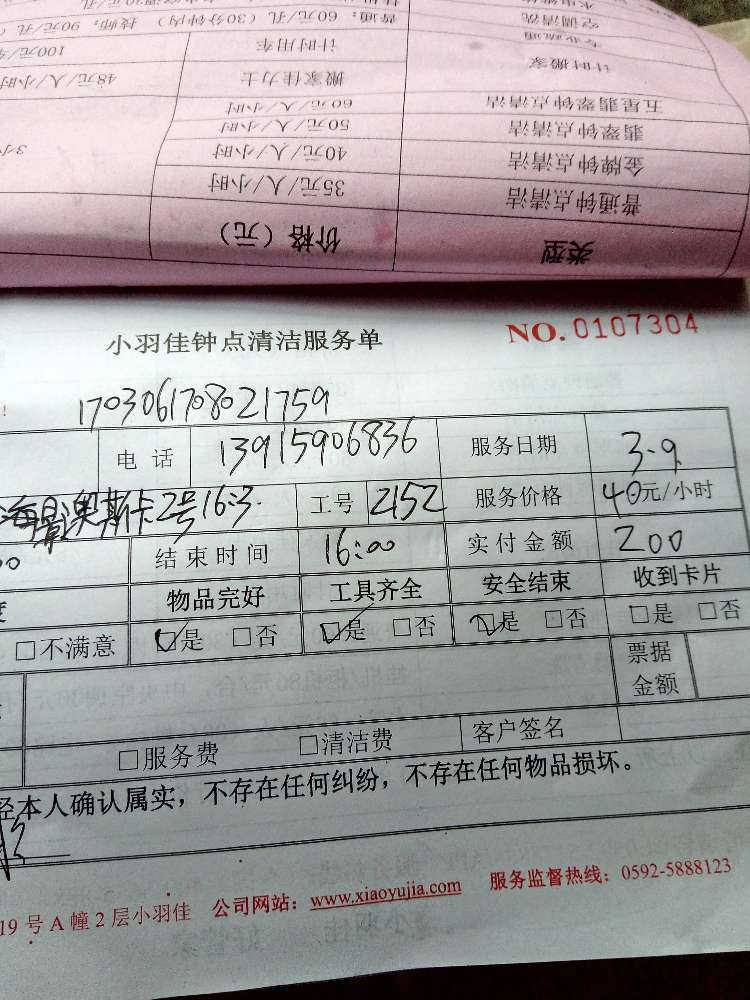 类型 价格（元）
普通钟点清洁 35元/人/小时
金牌钟点清洁 40元/人/小时 3小
翡翠钟点清洁 50元/人/小时
五星翡翠钟点清洁 60元/人/小时
计时搬家 搬家佳力士 48元/人/小时
计时用车 100元/车
专业疏通 普通：60元/孔（30分钟内）技师：90元/孔
空调清洗
小羽佳钟点清洁服务单 NO. 0107304
1703061708021759
电话 13915906836 服务日期 3.9
海景奥斯卡2号16:3 工号 2152 服务价格 40元/小时
00 结束时间 16:00 实付金额 200
度 物品完好 工具齐全 安全结束 收到卡片
□不满意 ☑是 □否 ☑是 □否 ☑是 □否 □是 □否
票据金额
□服务费 □清洁费 客户签名
经本人确认属实，不存在任何纠纷，不存在任何物品损坏。
19号A幢2层小羽佳 公司网站：www.xiaoyujia.com 服务监督热线：0592-5888123